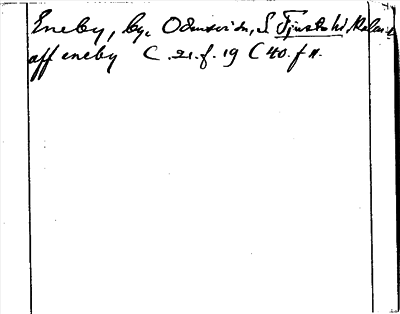 Eneby, by. Odensvi sn, S Tjusts hd, Kalm. l.
aff eneby C. 21. f. 19 C 40. f 11.